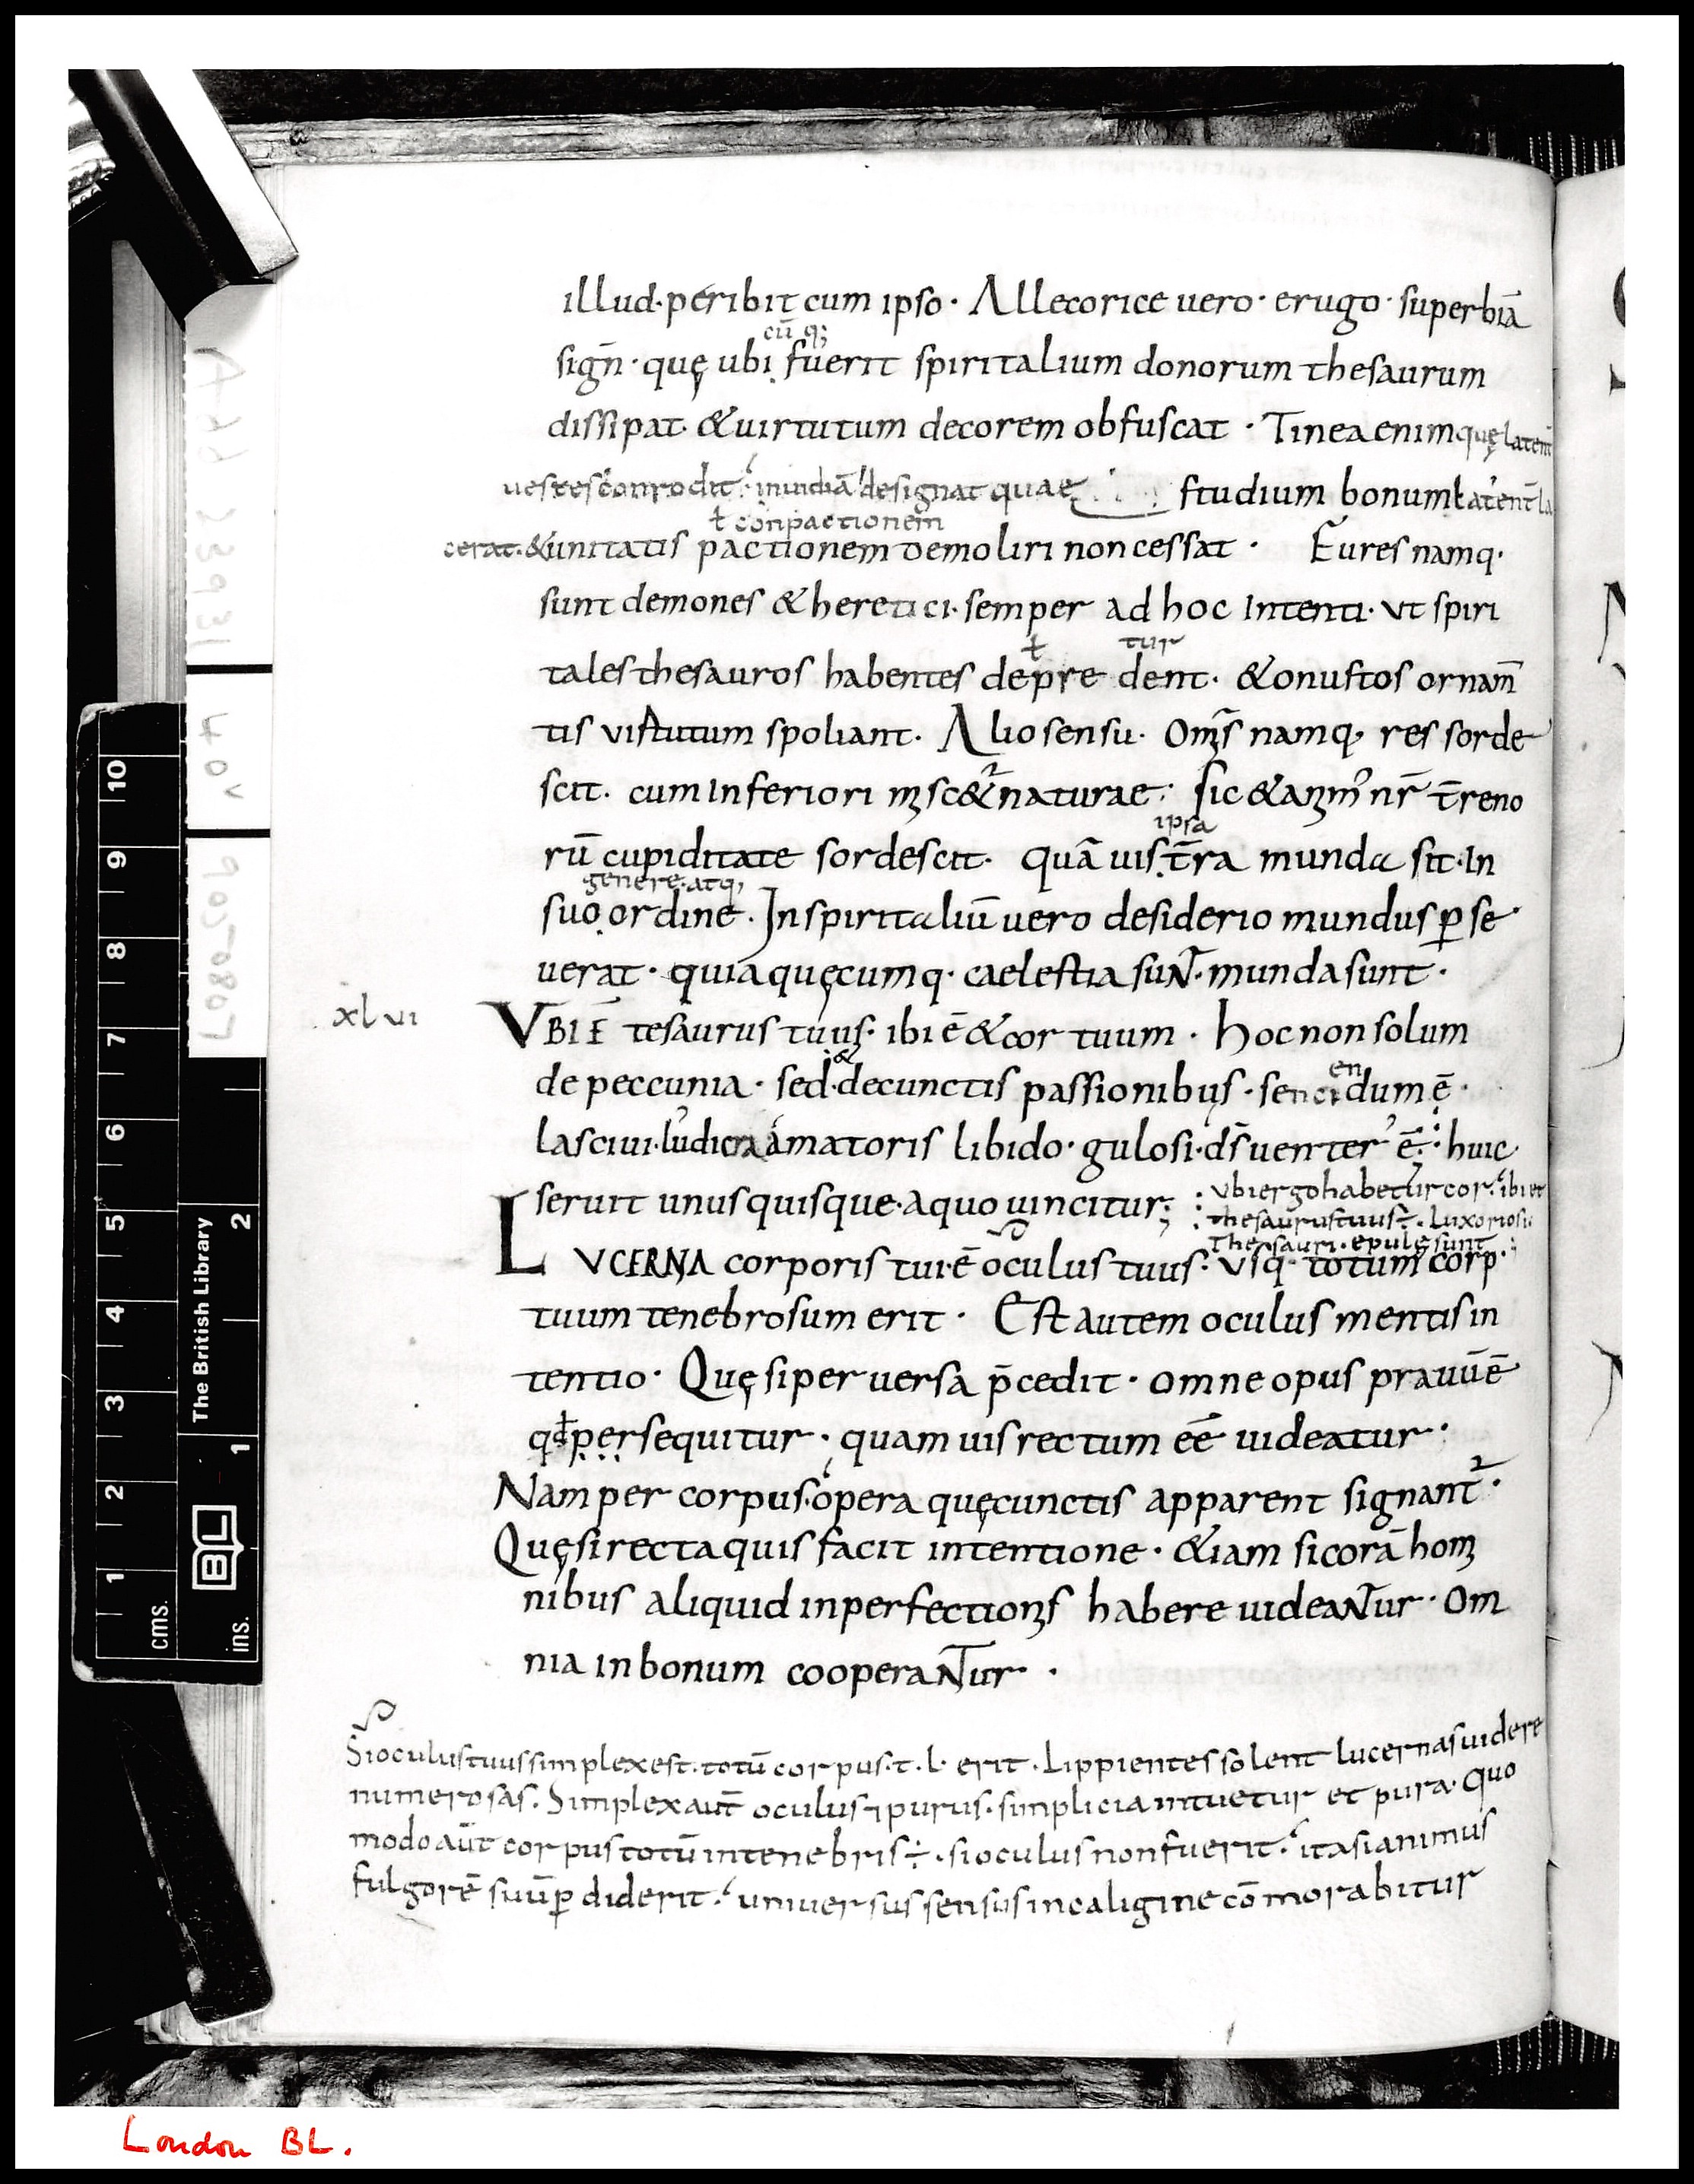 illud· peribit cum ipso · Allecorice uero · erugo · superbiā
cū q;
sigñ · quę ubi fuerit spiritalium donorum thesaurum
dissipat· & uirtutum decorem obfuscat · Tinea enim quę latent̄
uestes conrodit· inuidiā designat quae studium bonum
ł conpactionem
cerat· & unitatis pactionem demoliri non cessat · Fures namq·
sunt demones & heretici· semper ad hoc Intenti· vt spiri
ł tur
tales thesauros habentes depre dent· & onustos ornam̄
tis virtutum spoliant· Alio sensu· Om̄s namq· res sorde
scit· cum Inferiori miscet̄ naturae· sic & anim' nr̄ t̄reno
ipsa
rū cupiditate sordescit· quāuis t̄ra munda sit· In
genere· atq;
suo ordine · In spiritaliū uero desiderio mundus p̱se
uerat · quia quęcumq· caelestia suNT· munda sunt ·
xlvi
VBI Ē tesaurus tuus· ibi ē & cor tuum · hoc non solum
&
de peccunia · sed· de cunctis passionibus · sencidum ē·
en
lasciui· ludicra amatoris libido· gulosi· ds̄ uenter ē· huic
seruit unusquisque· a quo uincitur;
: vbi ergo habetur cor· ibi et
thesaurus tuus ÷· Luxoriosi
thesauri· epulę sunt
LVCERNA corporis tui ē oculus tuus· Vsq· totum corp·
tuum tenebrosum erit · Est autem oculus mentis in
tentio · Quę si peruersa p̄cedit · omne opus prauū ē
qd persequitur · quamuis rectum eē uideatur ·
Nam per corpus· opera quę cunctis apparent signant̄·
Quę si recta quis facit intentione · & iam si corā homi
nibus aliquid inperfectionis habere uideaNTur · Om
nia in bonum cooperaNTur ·
Si oculus tuus simplex est· totū corpus· t· l· erit · Lippientes solent lucernas uidere
numerosas· Simplex aut̄ oculus ⁊ purus· simplicia intuetur et pura· Quo
modo aūt corpus totū in tenebris ÷· si oculus non fuerit· ita si animus
fulgorē suū p̱diderit· uniuersus sensus in caligine cōmorabitur
A d d 2 3 9 3 1
4 0 v
9 0 2 0 8 0 7
10
9
8
7
6
5
4
3
2
1
cms.
2
1
ins.
The British Library
BL
London BL.